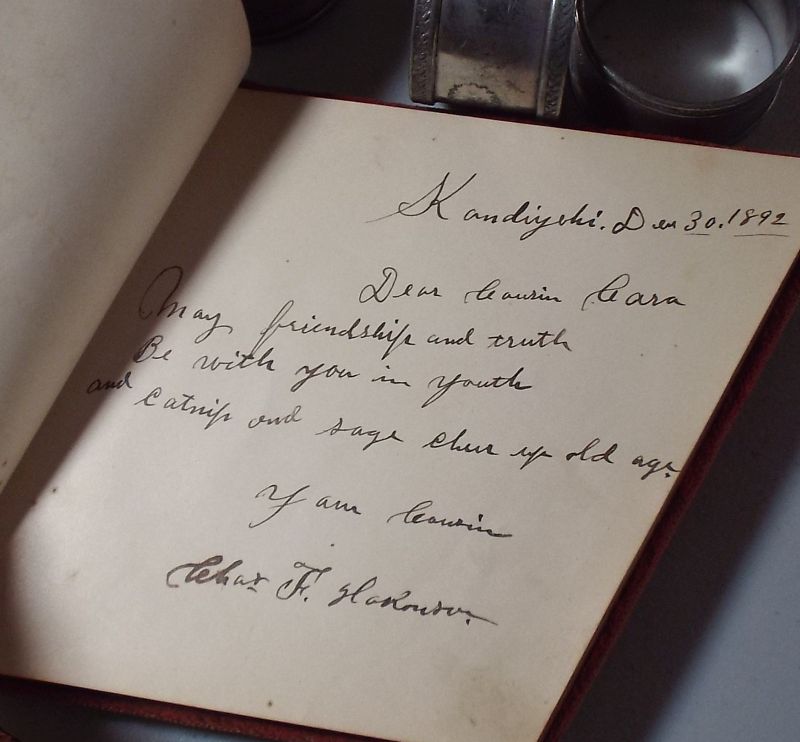 Kandiyohi. Dec 30. 1892
Dear Cousin Clara
May friendship and truth
Be with you in youth
and Catnip and sage cheer up old age.
Your Cousin
Chas F. Hakonson.